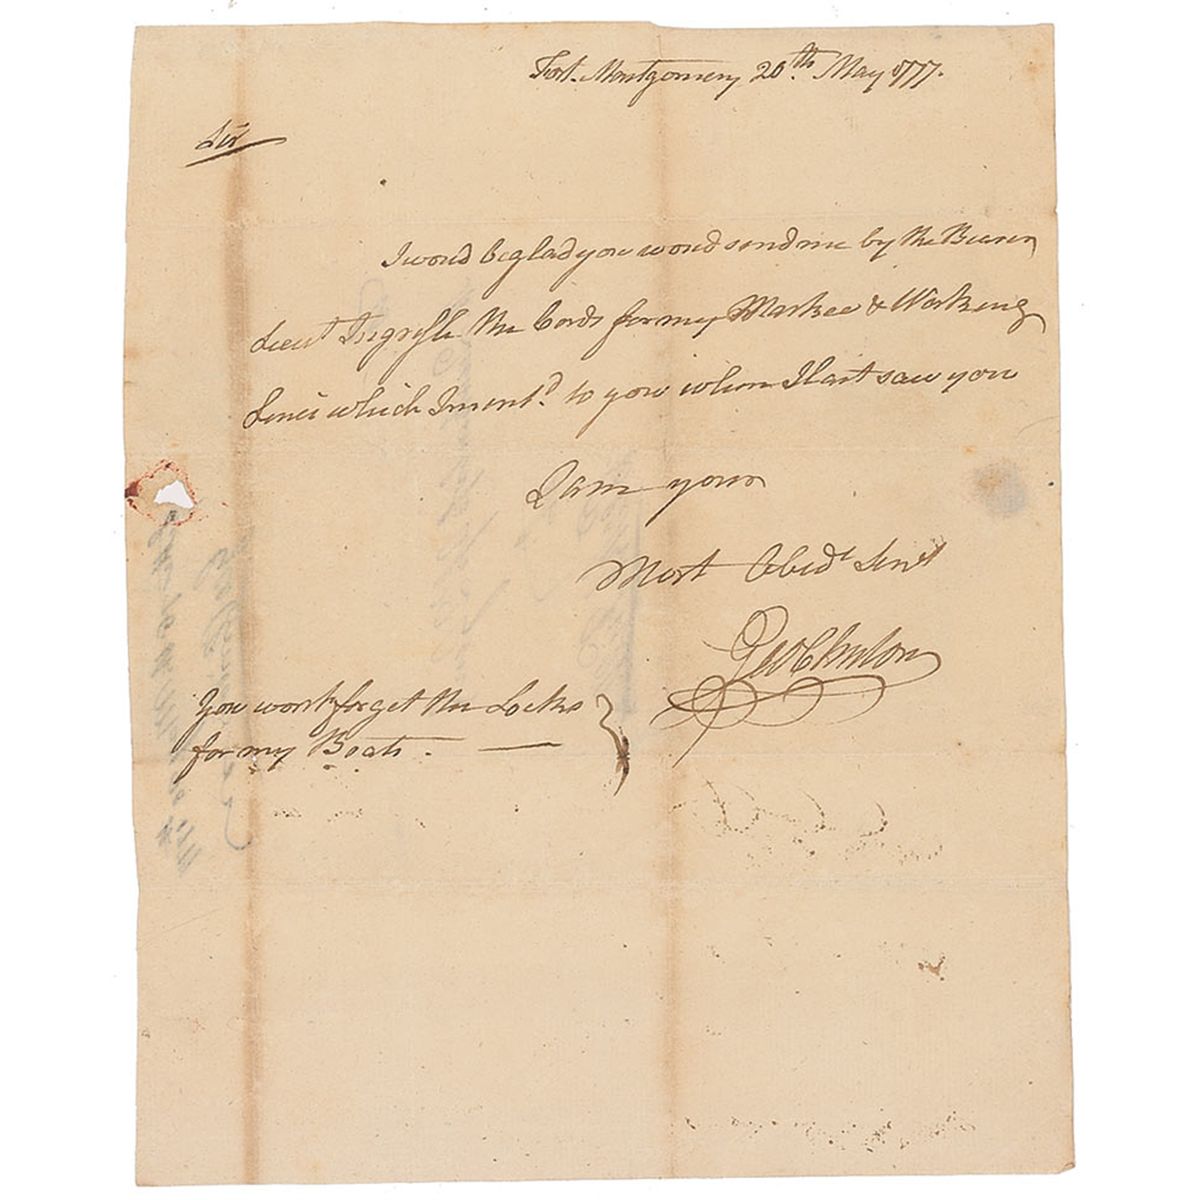 Fort Montgomery 20th May 1777.
Sir
I woud be glad you woud send me by the Bearer
Lieut the Cords for my Markee & Working
Lines which I ment'd to you when I last saw you
I am your
Most Obedt Servt
Geo Clinton
You wont forget the Locks
for my Boats. —